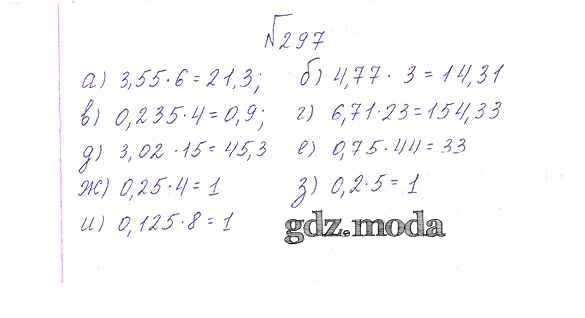 №297
а) 3,55·6=21,3; б) 4,77·3=14,31
в) 0,235·4=0,9; г) 6,71·23=154,33
д) 3,02·15=45,3 е) 0,75·44=33
ж) 0,25·4=1 з) 0,2·5=1
и) 0,125·8=1 gdz.moda